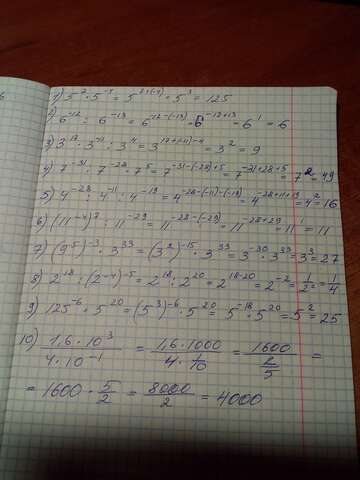 1) 5⁷ · 5⁻⁴ = 5⁷⁺⁽⁻⁴⁾ = 5³ = 125
2) 6⁻¹² : 6⁻¹³ = 6⁻¹²⁻⁽⁻¹³⁾ = 6⁻¹²⁺¹³ = 6¹ = 6
3) 3¹⁷ · 3⁻¹¹ : 3⁴ = 3¹⁷⁺⁽⁻¹¹⁾⁻⁴ = 3² = 9
4) 7⁻³¹ : 7⁻²⁸ · 7⁵ = 7⁻³¹⁻⁽⁻²⁸⁾⁺⁵ = 7⁻³¹⁺²⁸⁺⁵ = 7² = 49
5) 4⁻²⁸ : 4⁻¹¹ : 4⁻¹⁹ = 4⁻²⁸⁻⁽⁻¹¹⁾⁻⁽⁻¹⁹⁾ = 4⁻²⁸⁺¹¹⁺¹⁹ = 4² = 16
6) (11⁻⁴)⁷ : 11⁻²⁹ = 11⁻²⁸⁻⁽⁻²⁹⁾ = 11⁻²⁸⁺²⁹ = 11¹ = 11
7) (9⁵)⁻³ · 3³³ = (3²)⁻¹⁵ · 3³³ = 3⁻³⁰ · 3³³ = 3³ = 27
8) 2¹⁸ : (2⁻⁴)⁻⁵ = 2¹⁸ : 2²⁰ = 2¹⁸⁻²⁰ = 2⁻² = 1/2² = 1/4
9) 125⁻⁶ · 5²⁰ = (5³)⁻⁶ · 5²⁰ = 5⁻¹⁸ · 5²⁰ = 5² = 25
10) 1,6 · 10³ / 4 · 10⁻¹ = 1,6 · 1000 / 4 · 1/10 = 1600 / 2/5 =
= 1600 · 5/2 = 8000/2 = 4000